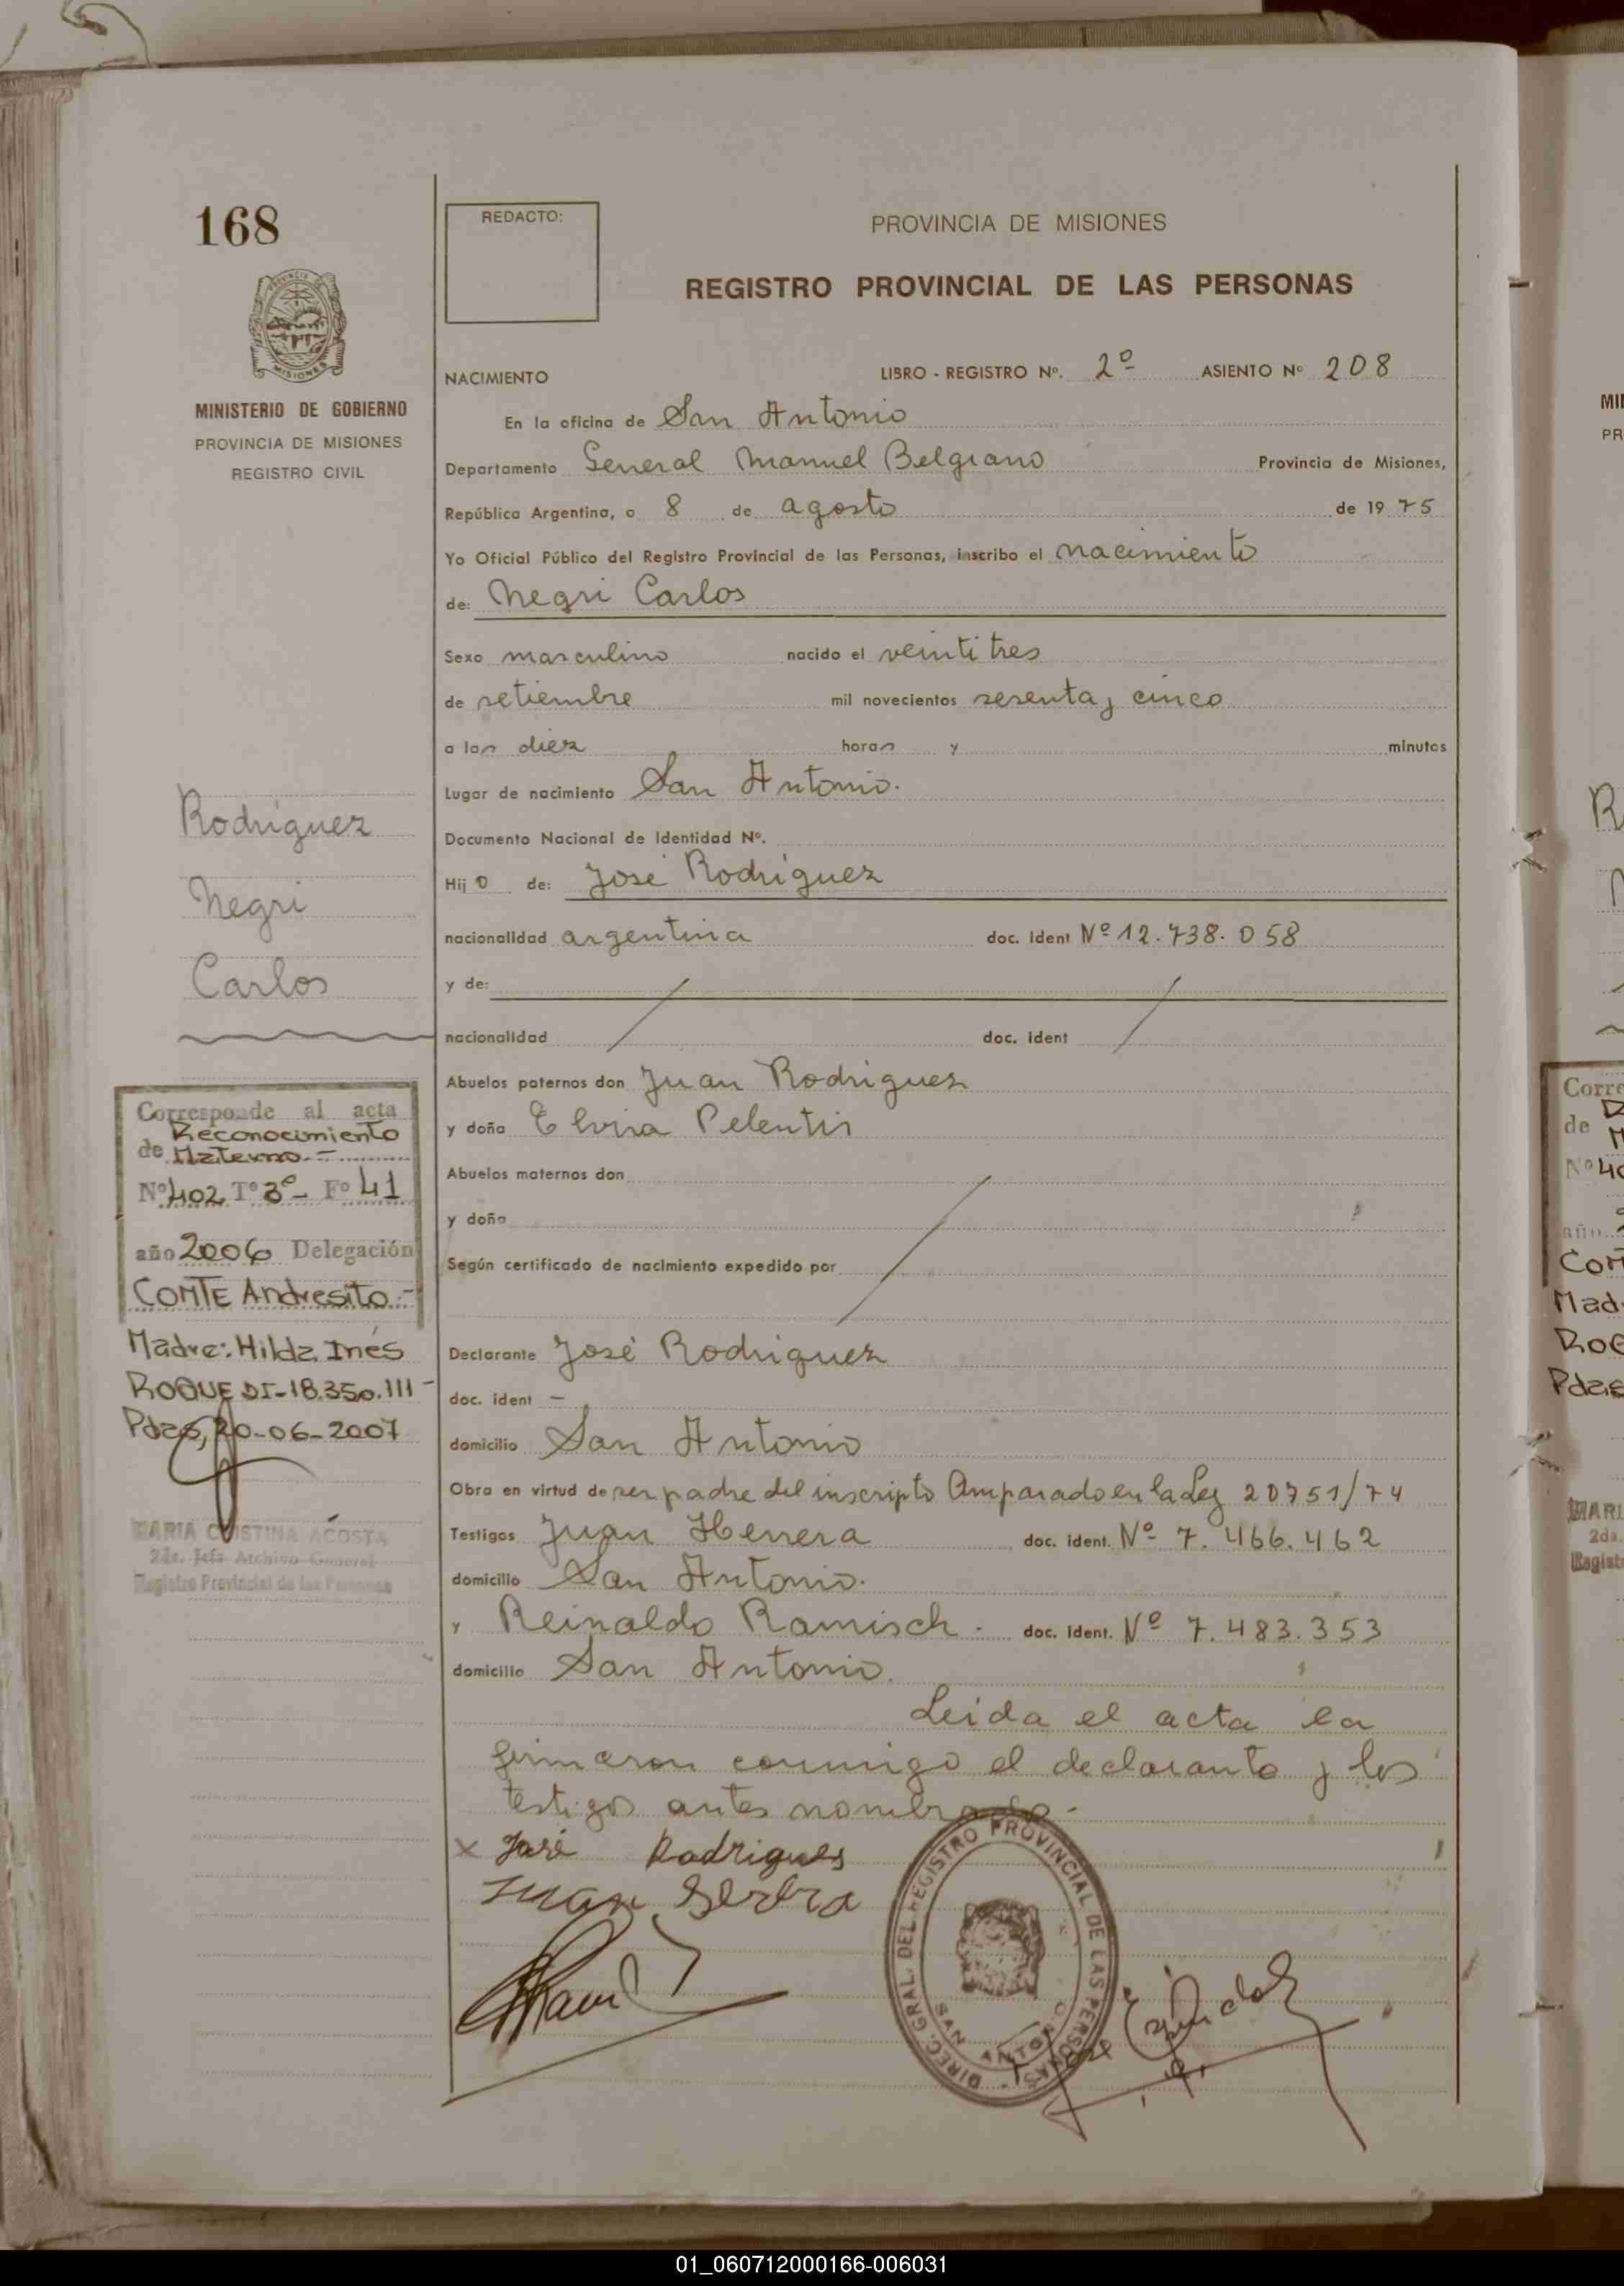 168
REDACTO:
PROVINCIA DE MISIONES
REGISTRO PROVINCIAL DE LAS PERSONAS
MISIONES
MINISTERIO DE GOBIERNO
PROVINCIA DE MISIONES
REGISTRO CIVIL
NACIMIENTO
LIBRO - REGISTRO Nº. 2º ASIENTO Nº 208
En la oficina de San Antonio
Departamento General Manuel Belgrano Provincia de Misiones,
República Argentina, a 8 de agosto de 1975
Yo Oficial Público del Registro Provincial de las Personas, inscribo el nacimiento
de: Negri Carlos
Sexo masculino nacido el veintitres
de setiembre mil novecientos sesenta y cinco
a las diez horas y minutos
Lugar de nacimiento San Antonio.
Documento Nacional de Identidad Nº.
Hijo de: José Rodriguez
nacionalidad argentina doc. ident Nº 12.738.058
y de:
nacionalidad doc. ident
Abuelos paternos don Juan Rodriguez
y doña Elvira
Abuelos maternos don
y doña
Según certificado de nacimiento expedido por
Declarante José Rodriguez
doc. ident —
domicilio San Antonio
Obra en virtud de ser padre del inscripto Amparado en la Ley 20751/74
Testigos Juan Herrera doc. ident. Nº 7.466.462
domicilio San Antonio.
y Reinaldo Ramisch. doc. ident. Nº 7.483.353
domicilio San Antonio.
Leida el acta la
firmaron conmigo el declarante y los
testigos antes nombrado.-
x José Rodrigues
Juan
DIREC. GRAL. DEL REGISTRO PROVINCIAL DE LAS PERSONAS
SAN ANTONIO
Rodríguez
Negri
Carlos
Corresponde al acta
de Reconocimiento
Materno.-
Nº 402 Tº 3º- Fº 41
año 2006 Delegación
COMTE Andresito.-
Madre: Hilda Inés
ROQUE DI-18.350.111-
Pdas, 20-06-2007
MARIA CRISTINA ACOSTA
2da. Jefa Archivo General
Registro Provincial de las Personas
01_060712000166-006031